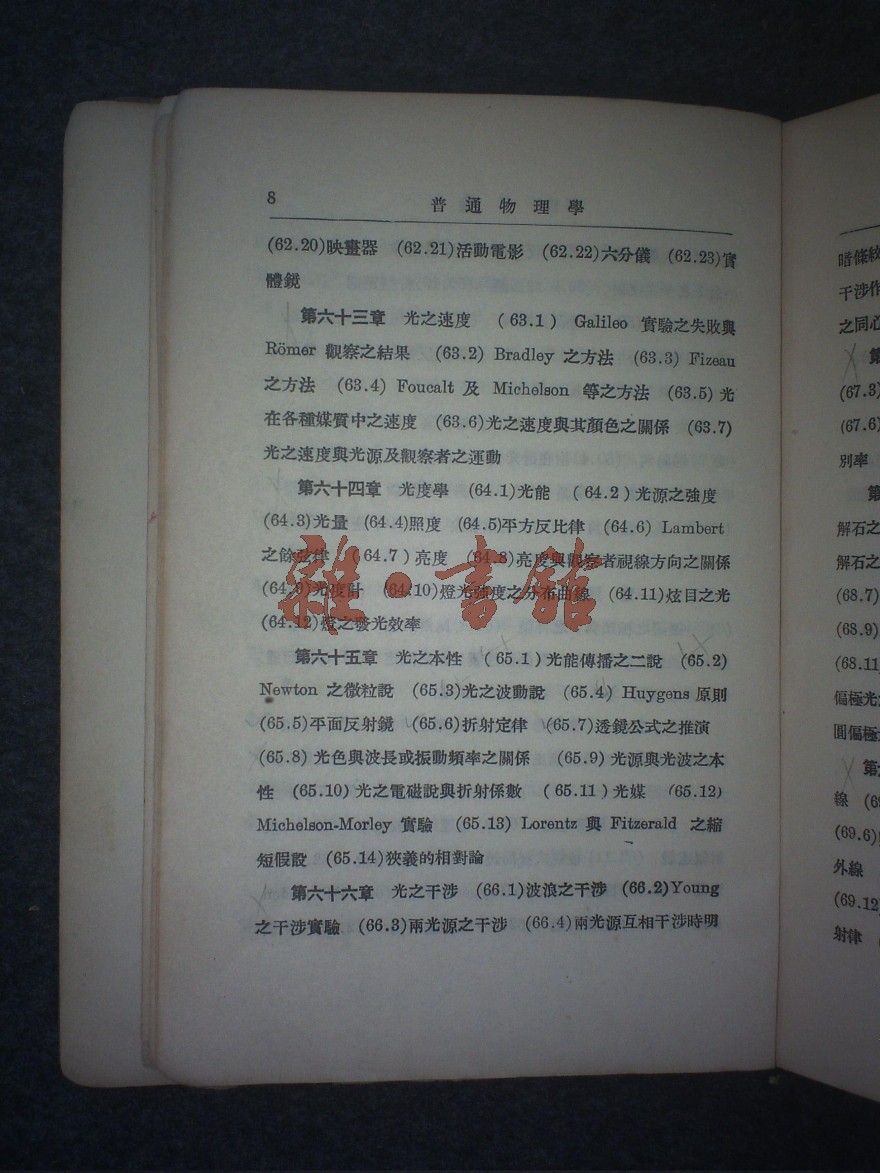 8 普通物理學
(62.20)映畫器 (62.21)活動電影 (62.22)六分儀 (62.23)實
體鏡
第六十三章 光之速度 (63.1) Galileo 實驗之失敗與
Römer 觀察之結果 (63.2) Bradley 之方法 (63.3) Fizeau
之方法 (63.4) Foucalt 及 Michelson 等之方法 (63.5) 光
在各種媒質中之速度 (63.6)光之速度與其顏色之關係 (63.7)
光之速度與光源及觀察者之運動
第六十四章 光度學 (64.1)光能 (64.2)光源之強度
(64.3)光量 (64.4)照度 (64.5)平方反比律 (64.6) Lambert
之餘弦律 (64.7) 亮度 (64.8)亮度與觀察者視線方向之關係
(64.9)光度計 (64.10)燈光強度之分布曲線 (64.11)炫目之光
(64.12)燈之發光效率
雜·書館
第六十五章 光之本性 (65.1)光能傳播之二說 (65.2)
Newton 之微粒說 (65.3)光之波動說 (65.4) Huygens 原則
(65.5)平面反射鏡 (65.6)折射定律 (65.7)透鏡公式之推演
(65.8) 光色與波長或振動頻率之關係 (65.9) 光源與光波之本
性 (65.10) 光之電磁說與折射係數 (65.11)光媒 (65.12)
Michelson-Morley 實驗 (65.13) Lorentz 與 Fitzerald 之縮
短假設 (65.14)狹義的相對論
第六十六章 光之干涉 (66.1)波浪之干涉 (66.2)Young
之干涉實驗 (66.3)兩光源之干涉 (66.4)兩光源互相干涉時明
暗條紋
干涉作
之同心
第
(67.3)
(67.6)
別率
第
解石之
解石之
(68.7)
(68.9)
(68.11)
偏極光
圓偏極
第六
線 (69
(69.6)
外線
(69.12)
射律